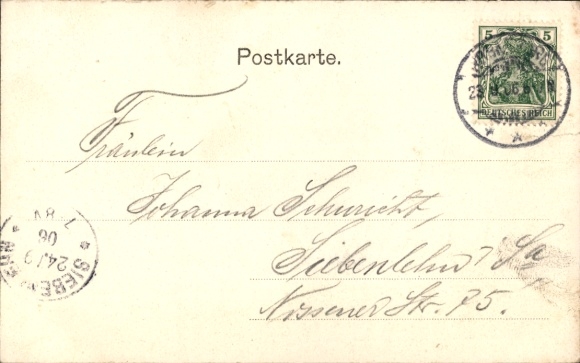 Postkarte.
5 5
DEUTSCHES REICH
Fräulein
Johanna Schuricht,
Siebenlehn Sa
Nossener Str. 75.
SIEBE
24/9
06